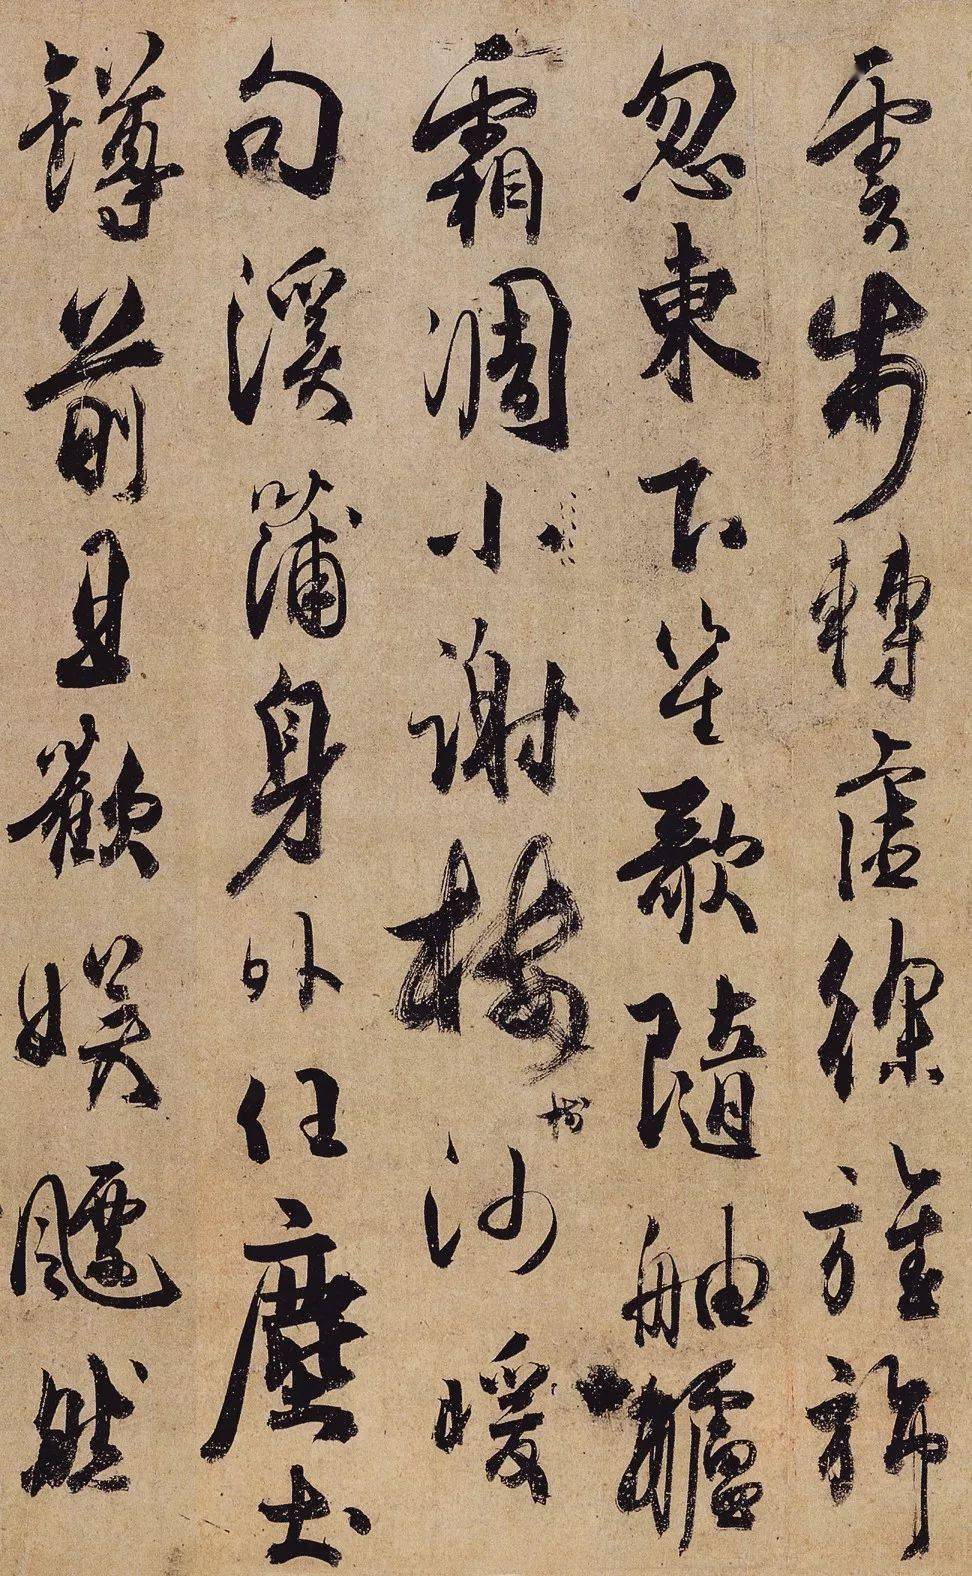 雲步轉虛徐旌旆
忽東下笙歌隨舳艫
霜凋小謝樓樹沙暖
句溪蒲身外任塵土
罇前且歡娛飄然